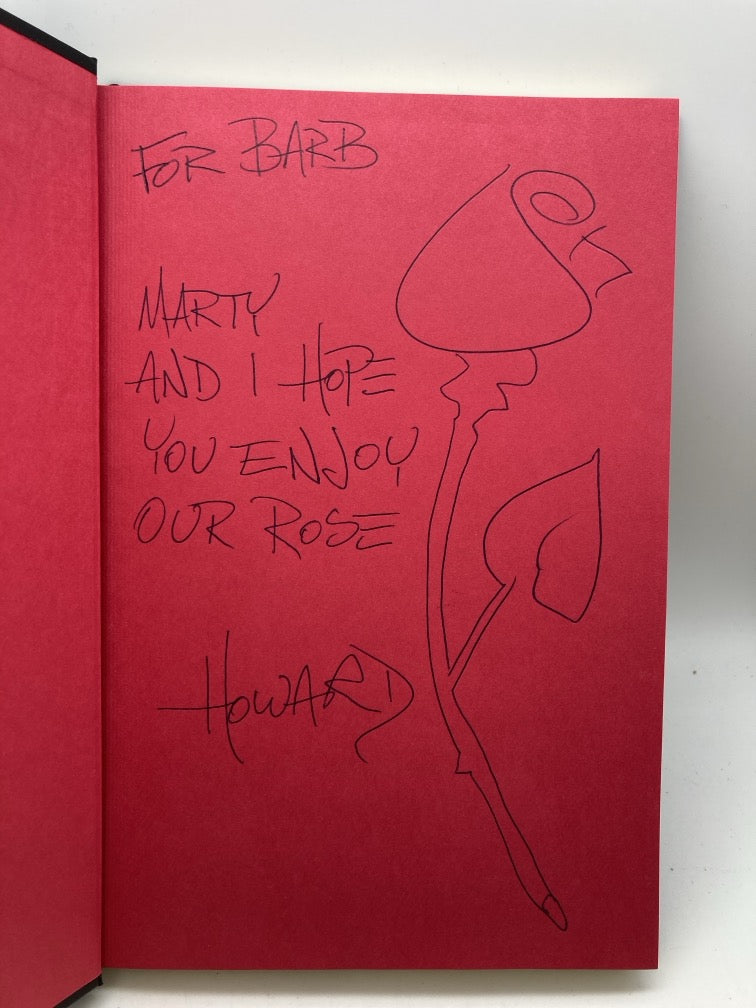 FOR BARB
MARTY
AND I HOPE
YOU ENJOY
OUR ROSE
HOWARD